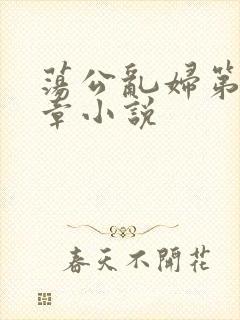 蕩公亂婦第
章小説
春天不開花